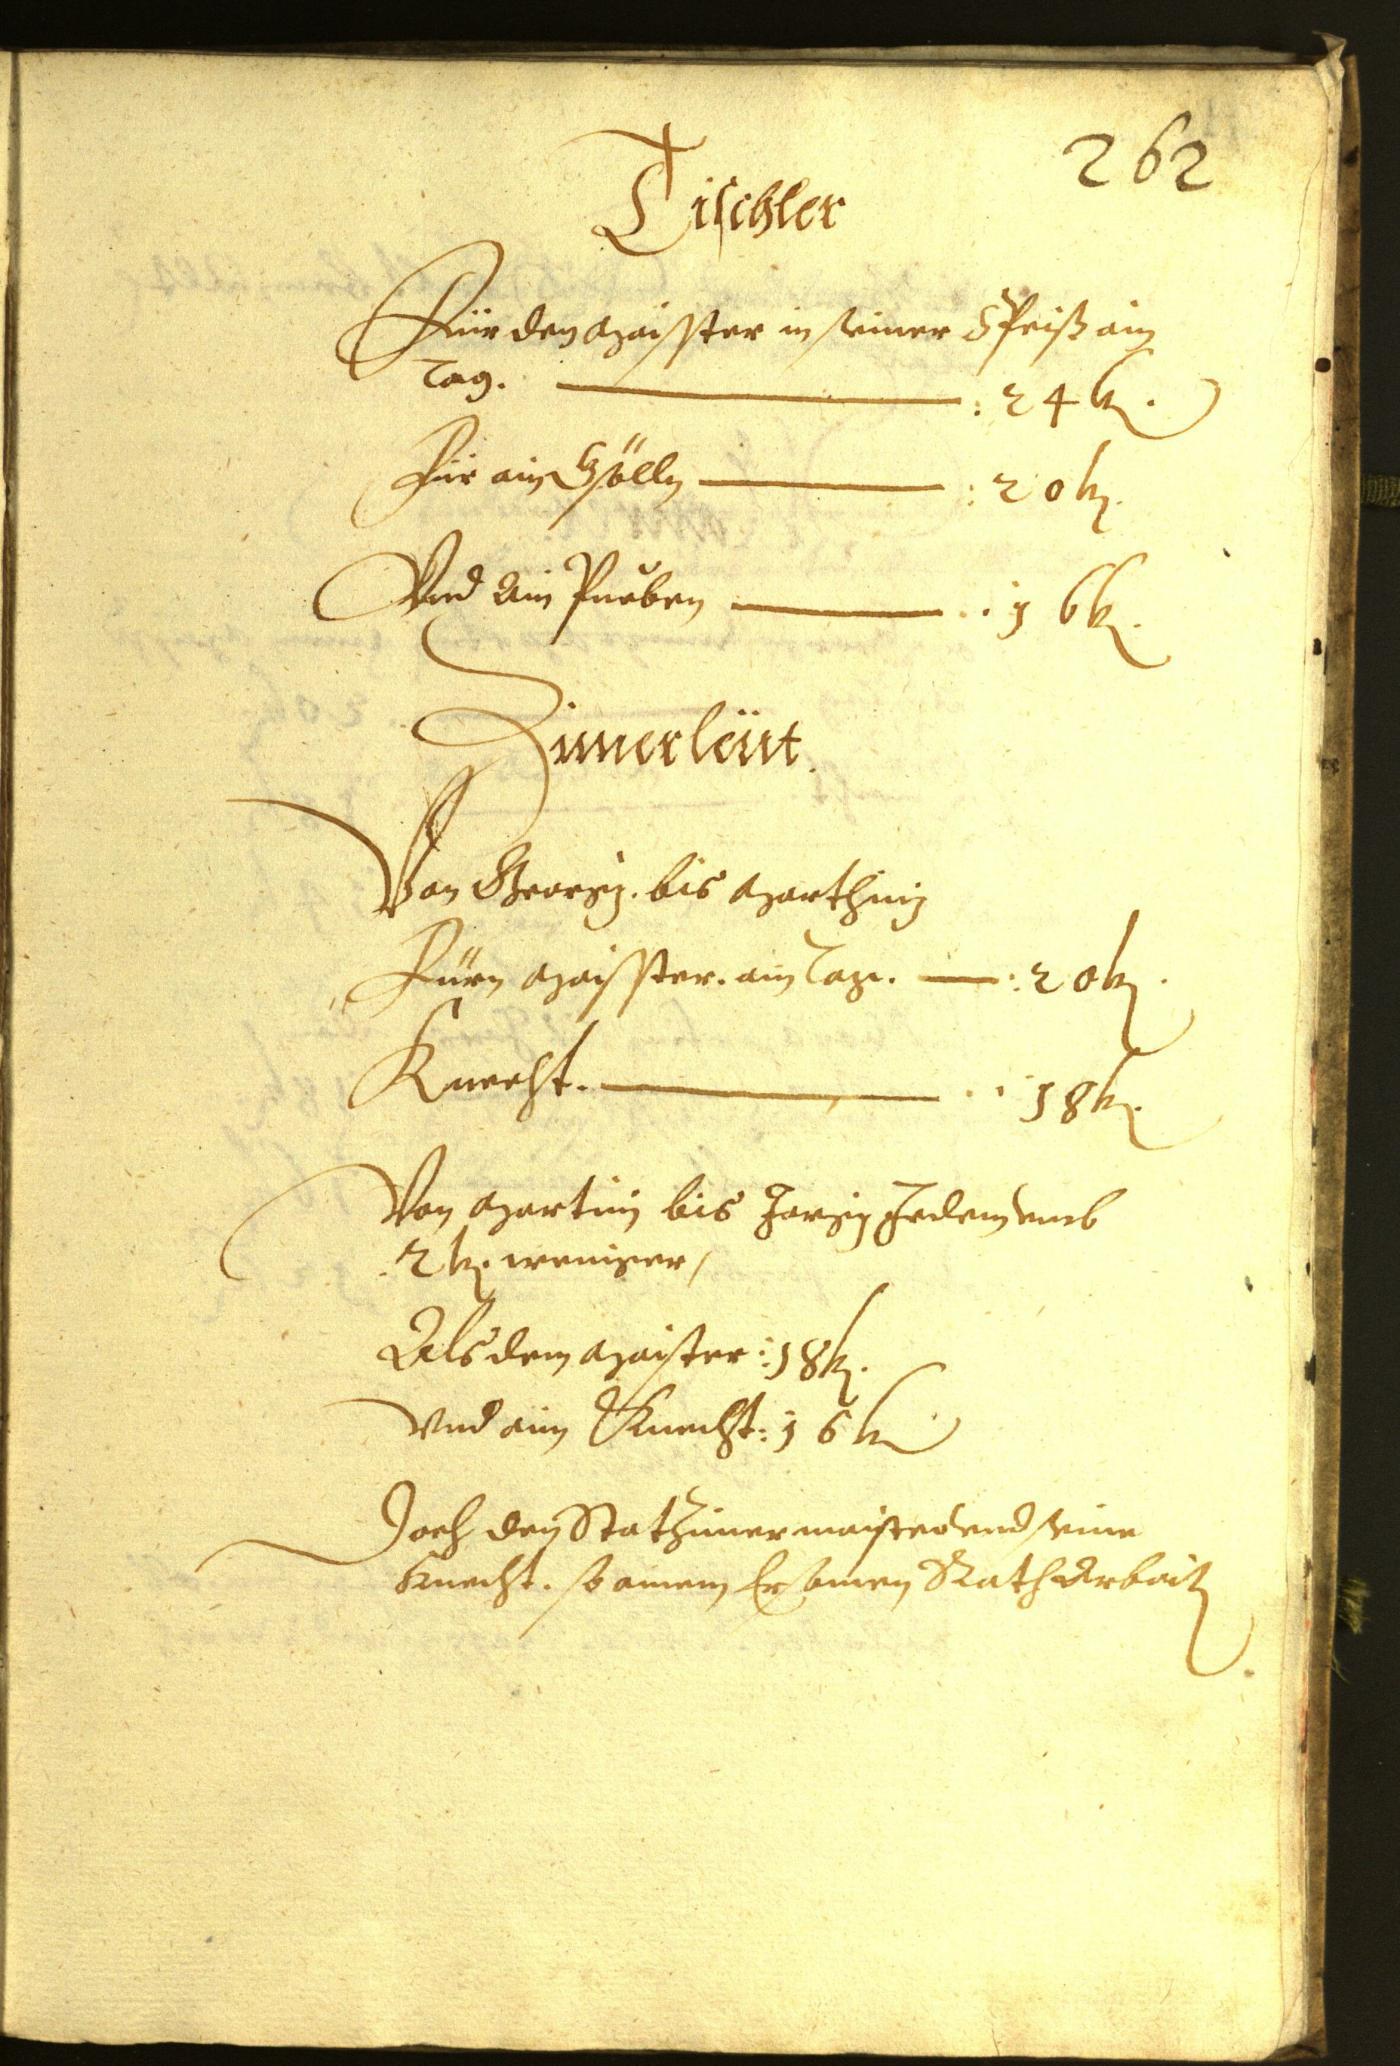 262
Tischler
Für den Maisster in seiner Speiß ain
Tag. : 24 kr.
Für ain Gsölln : 20 kr.
Vnd Ain Pueben 16 kr.
Zimerleüt.
Von Georgy. bis Marthiny
Fürn Maisster. ain Tag. : 20 kr.
Knecht. 18 kr.
Von Martiny bis Jorgy Jedem vmb
2 kr. weniger /
Als dem Maister : 18 kr.
vnd aim Knecht : 16 kr
Doch den Stat Zimermaister vnd seine
Knecht. so ainem Ersamen Rath Arbait